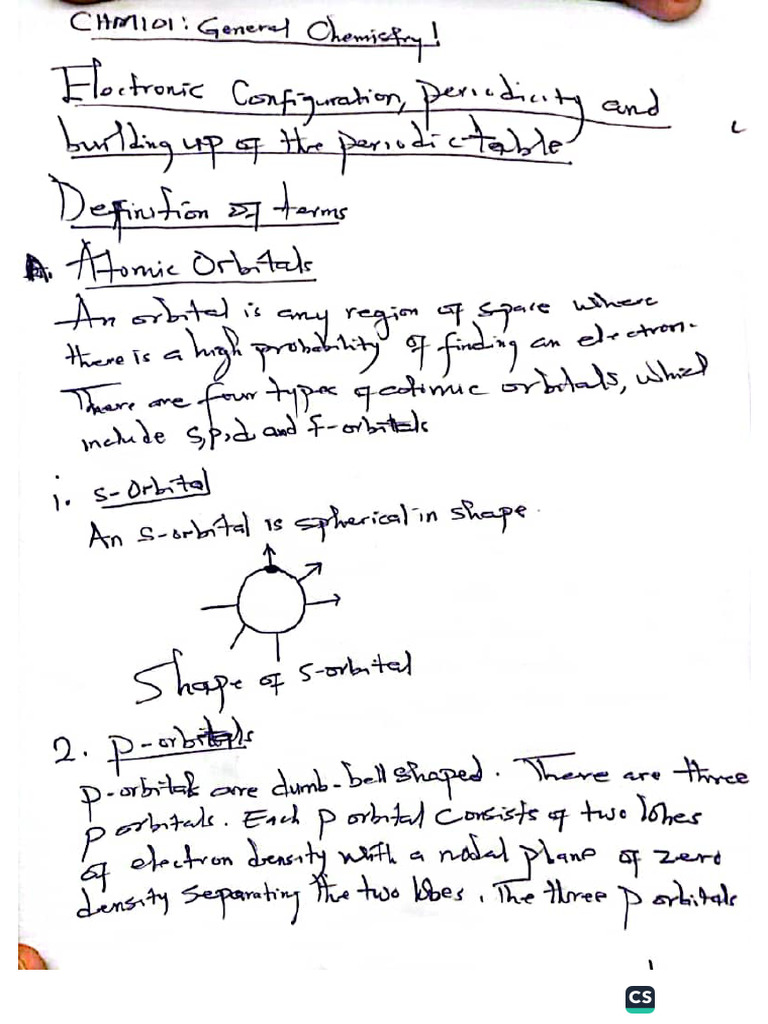 CHM101: General Chemistry 1
Electronic Configuration, periodicity and
building up of the periodic table
Definition of terms
A. Atomic Orbitals
An orbital is any region of space where
there is a high probability of finding an electron.
There are four types of atomic orbitals, which
include s,p,d and f-orbitals
i. s-orbital
An s-orbital is spherical in shape.
Shape of s-orbital
2. p-orbitals
p-orbitals are dumb-bell shaped. There are three
p orbitals. Each p orbital consists of two lobes
of electron density with a nodal plane of zero
density separating the two lobes. The three p orbitals
1
CS